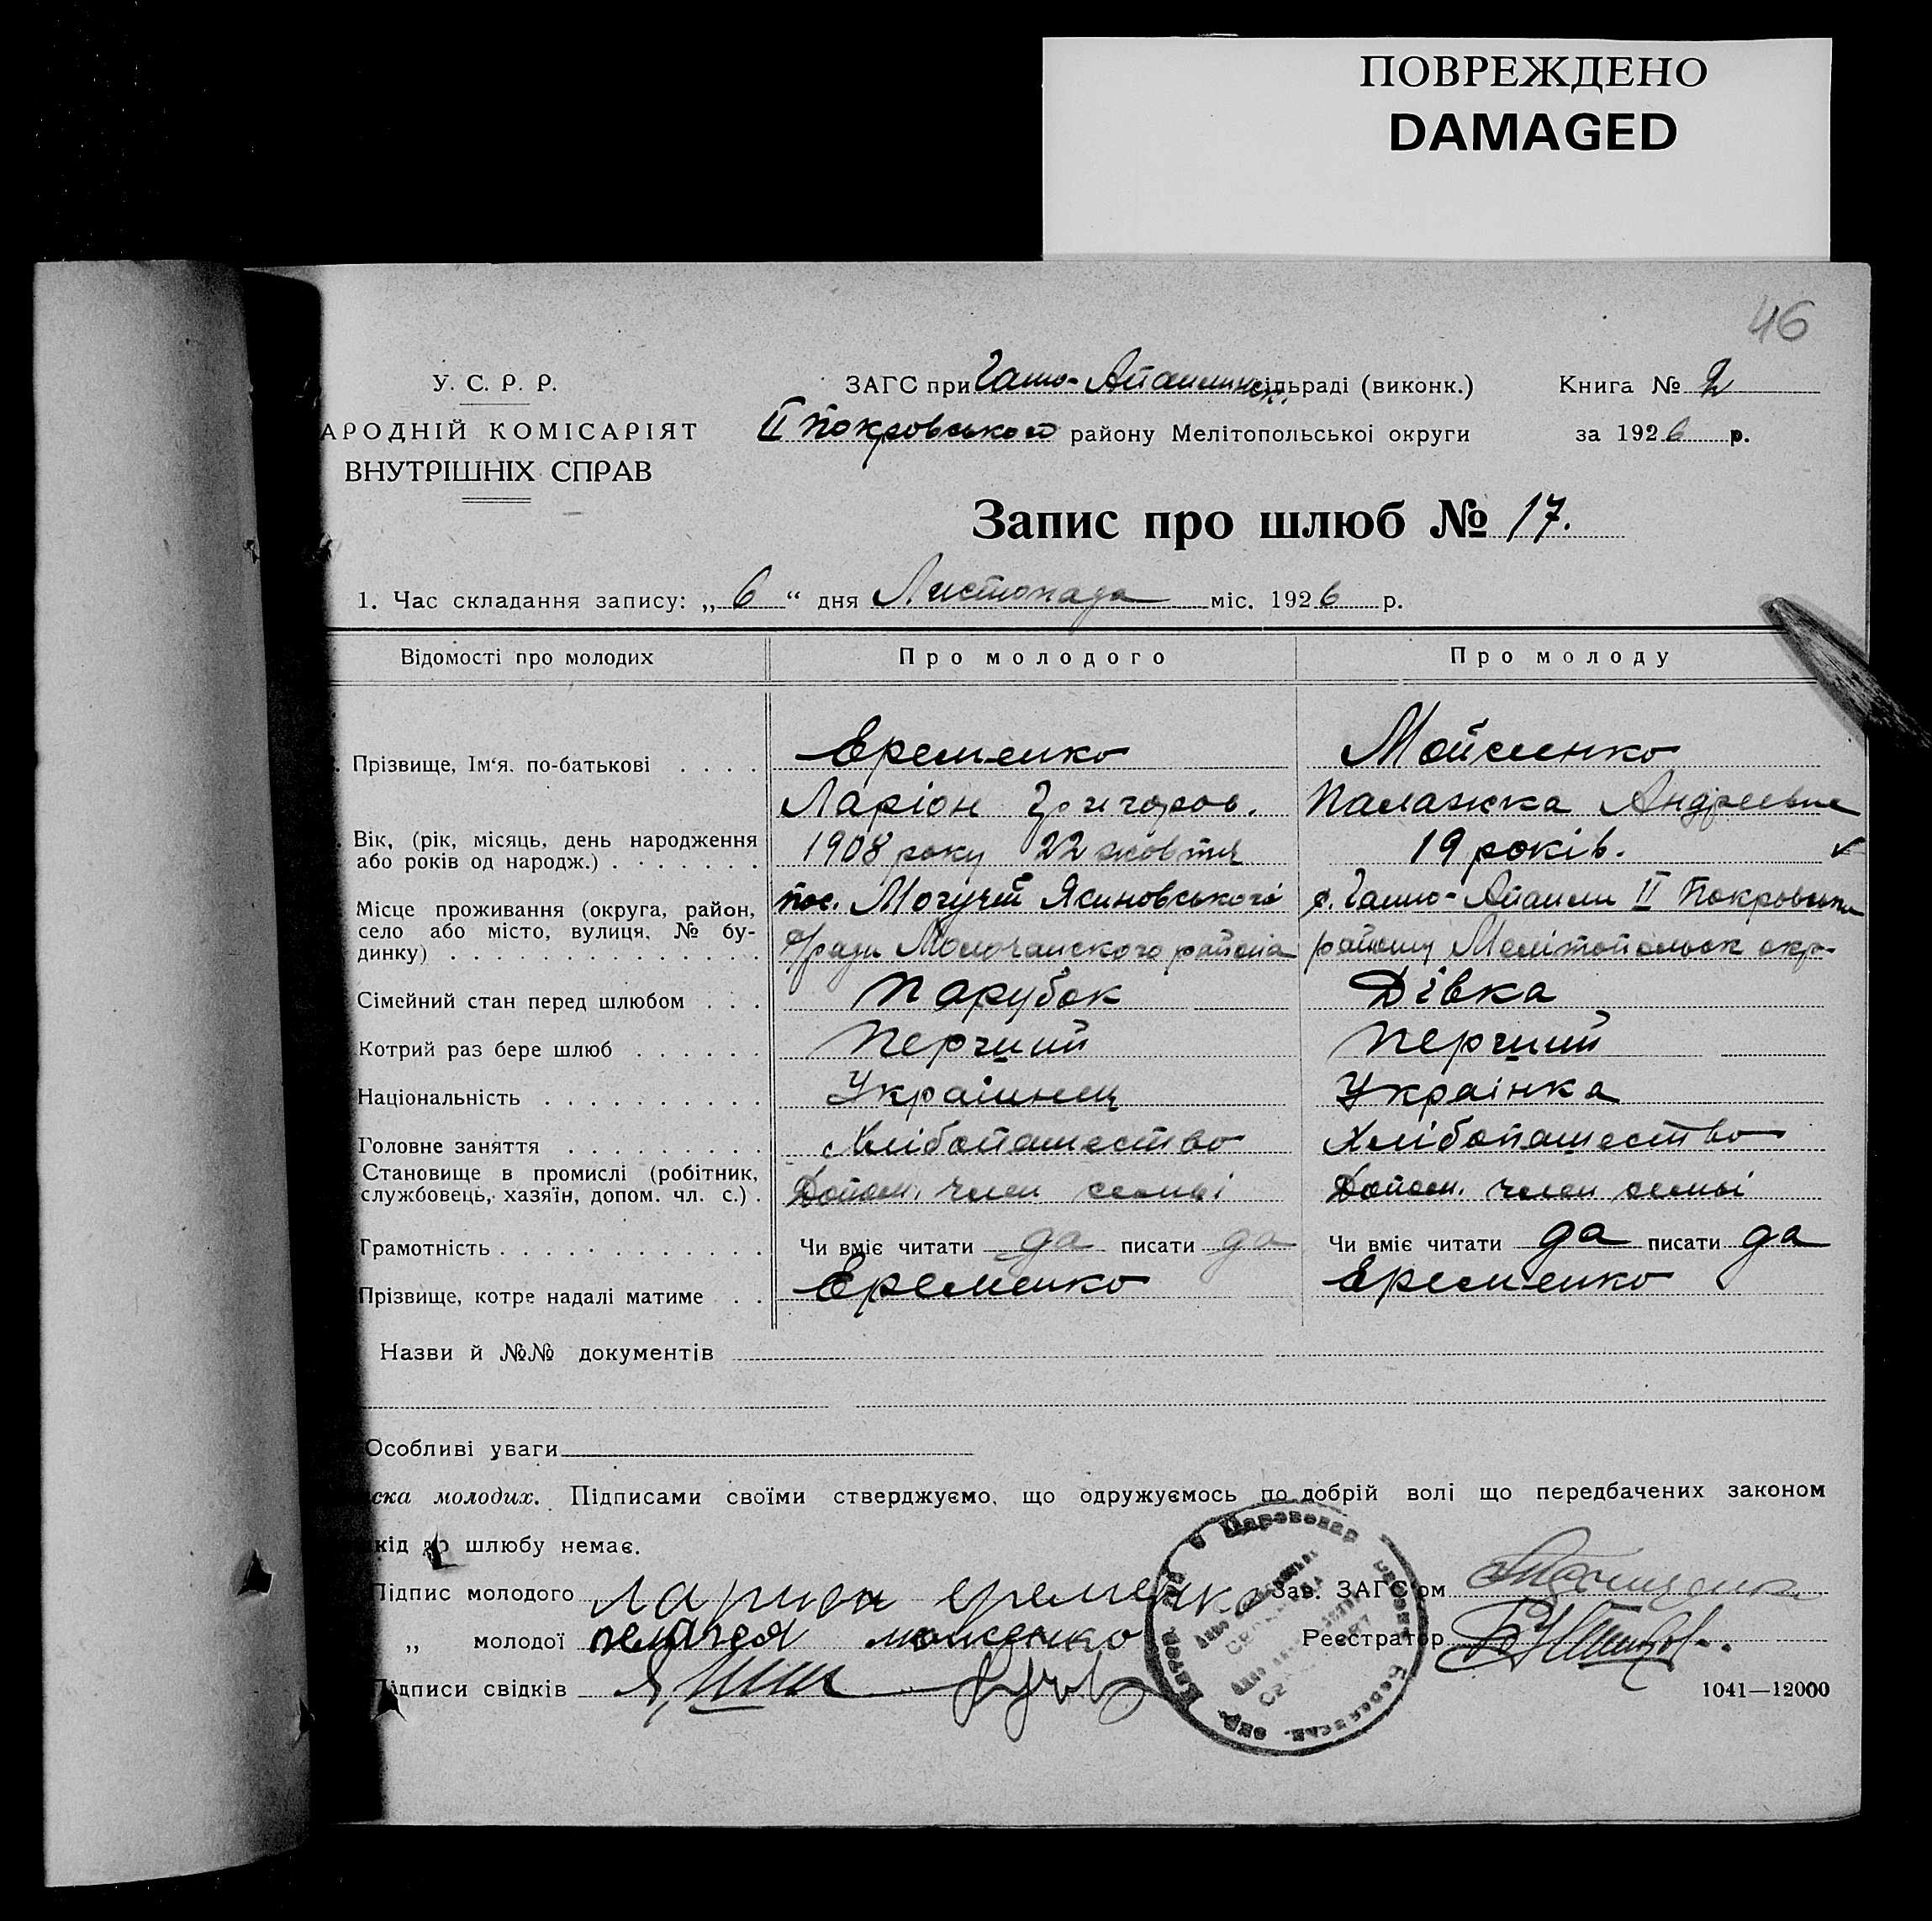 ПОВРЕЖДЕНО
DAMAGED
46
У. С. Р. Р.
АРОДНІЙ КОМІСАРІЯТ
ВНУТРІШНІХ СПРАВ
ЗАГС при сільраді (виконк.) Книга № 2
ІІ Покровського району Мелітопольської округи за 1926 р.
Запис про шлюб № 17.
1. Час складання запису: „ 6 “ дня Листопада міс. 1926 р.
Відомості про молодих Про молодого Про молоду
Прізвище, Ім‘я. по-батькові . . . . Еременко Мойсенко
Ларіон Григоров. Палажка Андреевна
Вік, (рік, місяць, день народження 1908 року 22 жовтня 19 років.
або років од народж.) . . . . . . .
Місце проживання (округа, район, пос. Могучій Ясиновського ІІ Покровськ
село або місто, вулиця, № бу-
динку) . . . . . . . . . . . . . . с/ради Молочанского района району Мелітопольск окр.
Сімейний стан перед шлюбом . . . Парубок Дівка
Котрий раз бере шлюб . . . . . . Перчший Перчший
Національність . . . . . . . . . . Українец Українка
Головне заняття . . . . . . . . . Хлібопашество Хлібопашество
Становище в промислі (робітник,
службовець, хазяїн, допом. чл. с.) . Допом. член семьі Допом. член семьі
Грамотність . . . . . . . . . . . . Чи вміє читати да писати да Чи вміє читати да писати да
Прізвище, котре надалі матиме . . Еременко Еременко
Назви й №№ документів
Особливі уваги
ска молодих. Підписами своїми стверджуємо, що одружуємось по добрій волі що передбачених законом
кід до шлюбу немає.
Підпис молодого Ларион еременко Зав. ЗАГС'ом
„ молодої Реєстратор
Підписи свідків
1041—12000